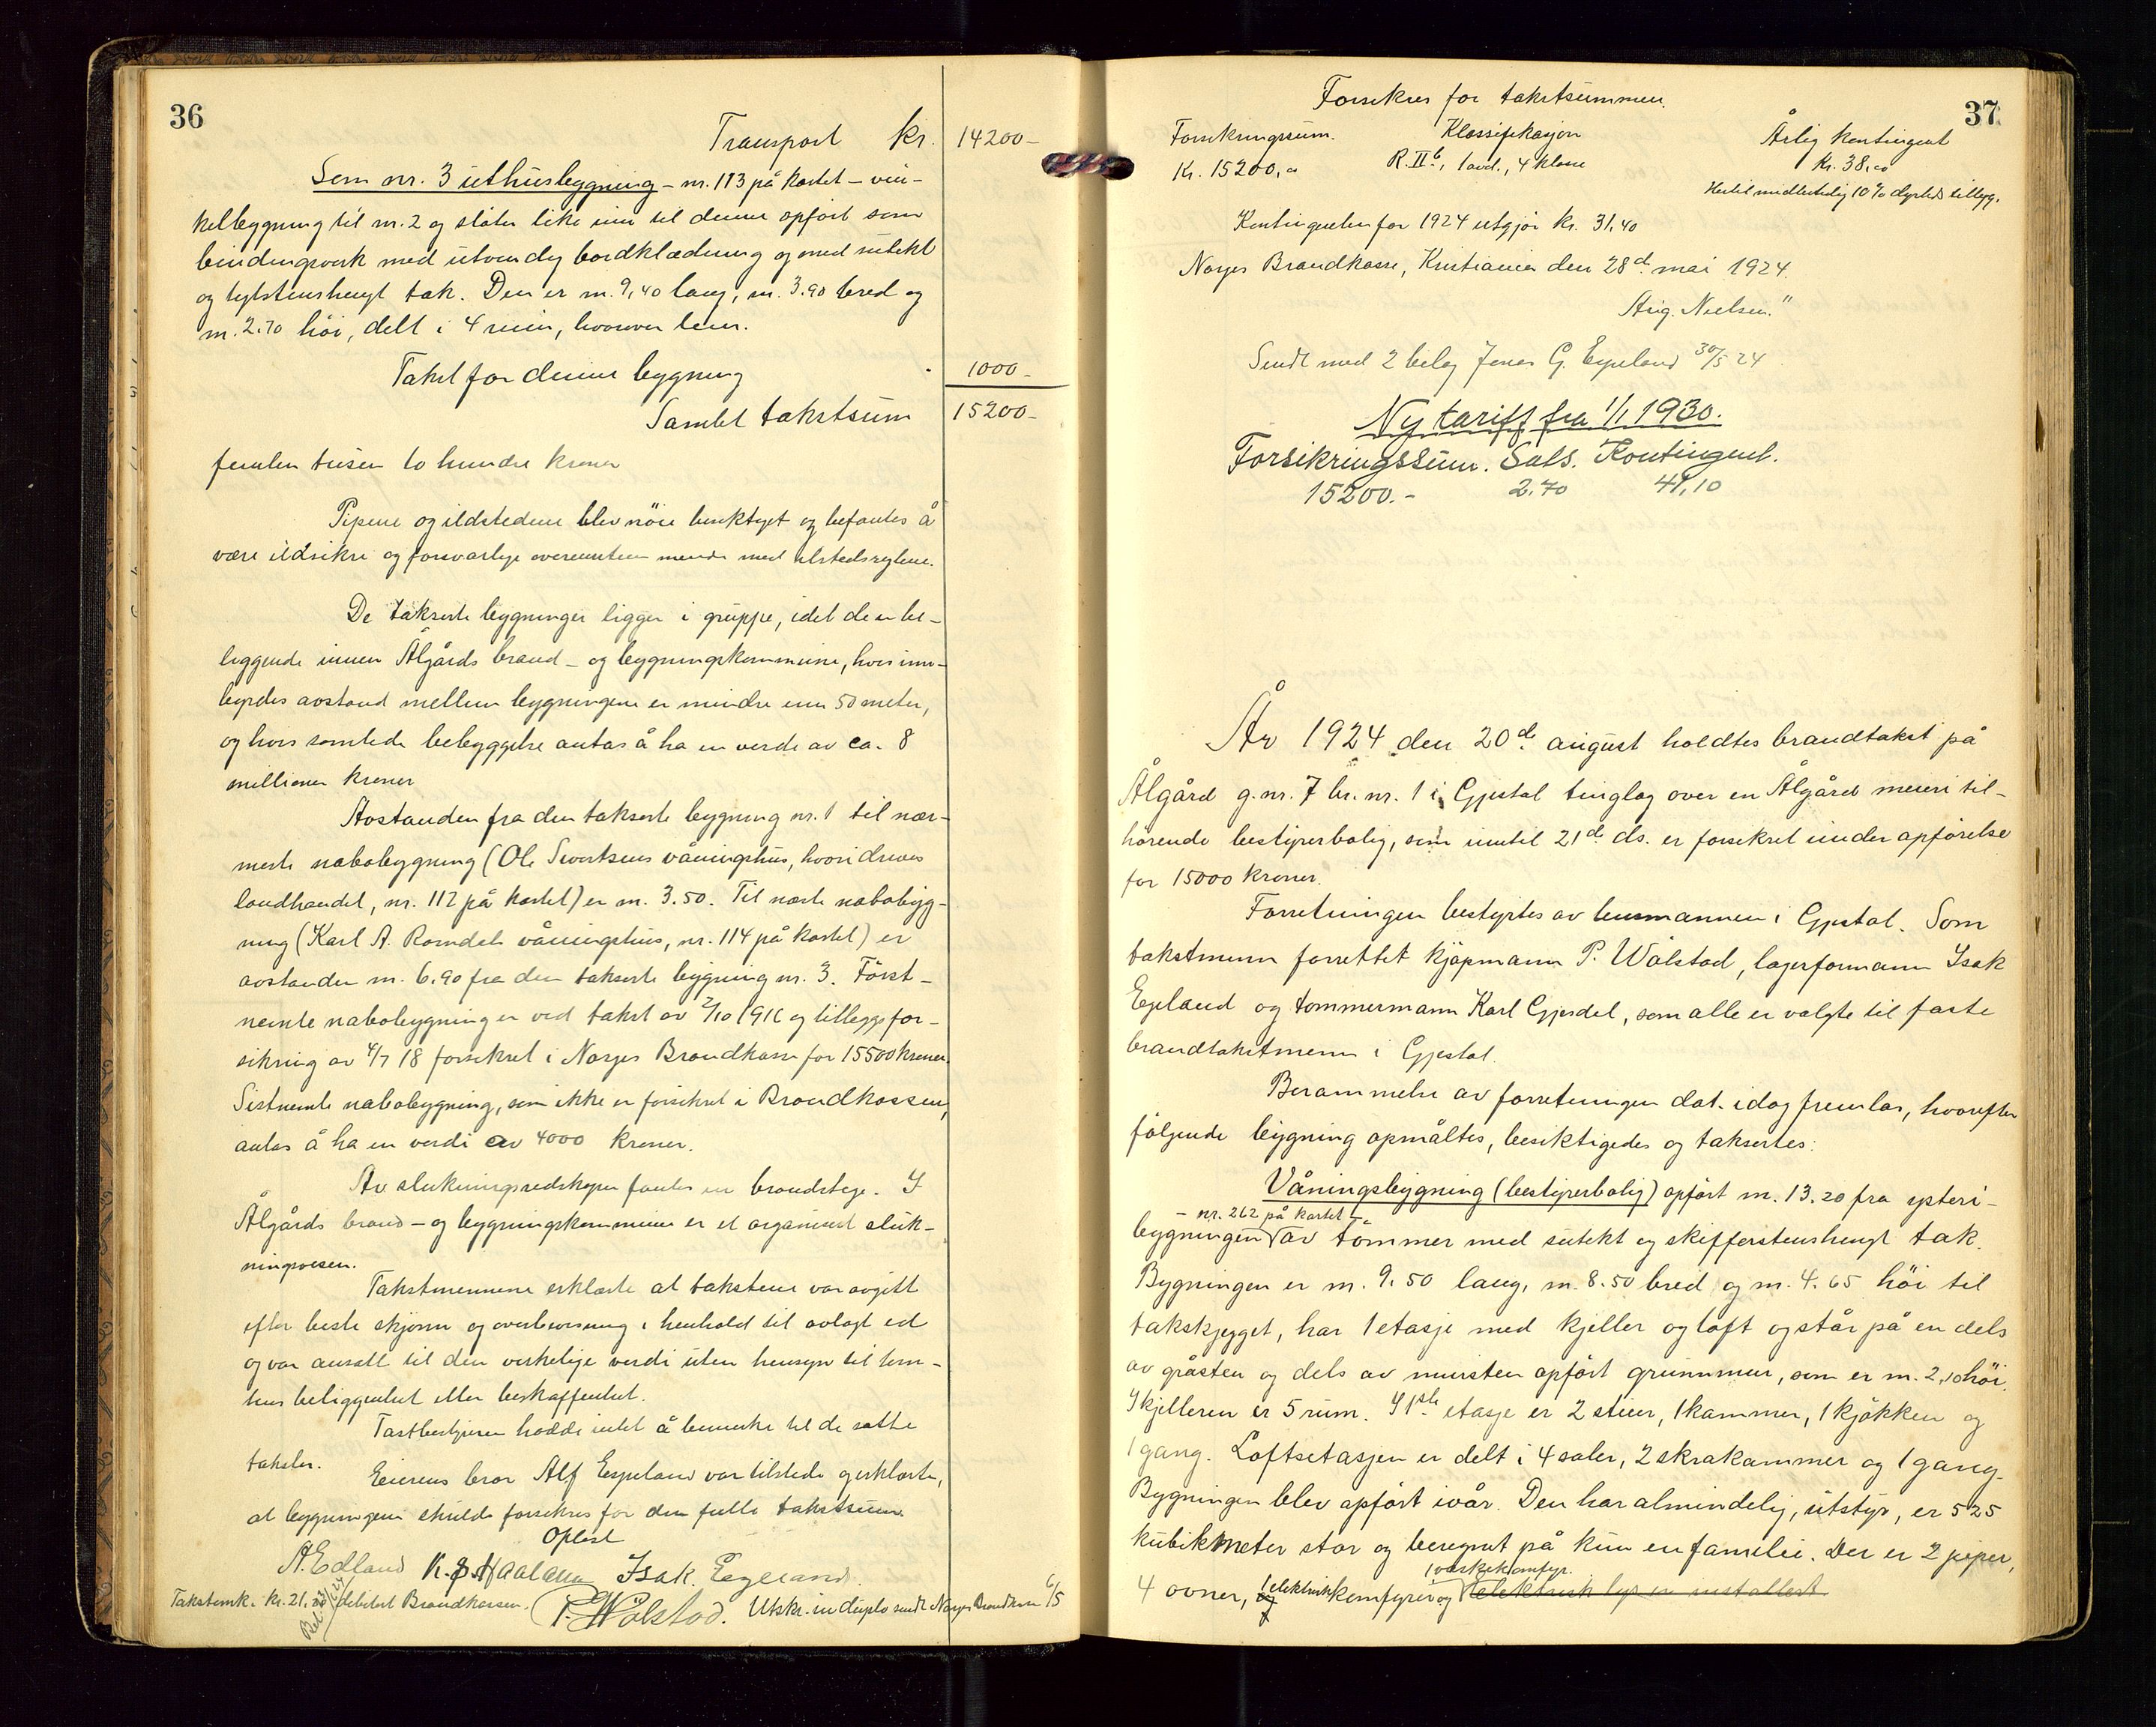 36
Transport kr. 14200-
Som nr. 3 uthusbygning - nr. 113 på kartet - vin-
kelbygning til nr. 2 og støter like inn til denne opført som
bindingsverk med utvendig bordklædning og med sutekt
og teglstenshengt tak. Den er m. 9,40 lang, m. 3.90 bred og
m. 2.70 høi, delt i 4 rum, hvorover lem.
Takst for denne bygning 1000-
Samlet takstsum 15200-
femten tusen to hundre kroner
Pipene og ildstedene blev nöie besiktiget og befantes å
være ildsikre og forsvarlige overensstem mende med ilstedsreglene.
De takserte bygninger ligger i gruppe, idet de er be-
liggende innen Ålgårds brand- og bygningskommune, hvis inn-
byrdes avstand mellem bygningene er mindre enn 50 meter,
og hvis samlede bebyggelse antas å ha en verde av ca. 8
millioner kroner
Avstanden fra den takserte bygning nr. 1 til nær-
meste nabobygning (Ole Sivertsens våningshus, hvori drives
landhandel, nr. 112 på kartet) er m. 3.50. Til næste nabobyg-
ning (Karl A. Romdals våningshus, nr. 114 på kartet) er
avstanden m. 6.90 fra den takserte bygning nr. 3. Först-
nemte nabobygning er ved takst av 2/10 1916 og tilleggsfor-
sikring av 4/7 18 forsikret i Norges Brandkasse for 15500 kroner.
Sistnemte nabobygning, som ikke er forsikret i Brandkassen,
antas å ha en verdi av 4000 kroner.
Av slukningsredskaper fantes en brandstige. I
Ålgårds brand- og bygningskommune er et organisert sluk-
ningsvesen.
Takstmennene erklærte at takstene var avgitt
efter beste skjønn og overbevisning i henhold til avlagt ed
og var ansatt til den virkelige verdi uten hensyn til tom-
tens beliggenhet eller beskaffenhet.
Tastbestyreren hadde intet å bemerke til de satte
takster.
Eierens bror Alf Espeland var tilstede og erklærte,
at bygningene skulde forsikres for den fulle takstsum.
Oplest
A. Edland K. S. Haaland Isak Egeland.
P. Wålstad.
Takstomk. kr. 21,20 debitert Brandkassen. Utskr. in duplo sendt Norges Brandkasse 6/5
37
Forsikres for takstsummen.
Forsikringssum. Klassifikasjon Årlig kontingent
Kr. 15200,00 R. IIb, 1 avd., 4 klasse Kr. 38,00
Hertil midlertidig 10% dyrtids tillegg.
Kontingenten for 1924 utgjør kr. 31,40
Norges Brandkasse, Kristiania den 28d. mai 1924.
Sig. Nielsen."
Sendt med 2 bilag Jonas G. Espeland 30/5 24
Ny tariff fra 1/1 1930.
Forsikringssum. Sats. Kontingent.
15200.- 2.70 41,10
År 1924 den 20de august holdtes brandtakst på
Ålgård g.nr. 7 br. nr. 1 i Gjestal tinglag over en Ålgård meieri til-
hørende bestyrerbolig, som inntil 21de ds. er forsikret under opførelse
for 15000 kroner.
Forretningen bestyrtes av lensmannen i Gjestal. Som
takstmenn forrettet kjøpmann P. Wålstad, lagerformann Isak
Egeland og tømmermann Karl Gjesdal, som alle er valgte til faste
brandtakstmenn i Gjestal.
Berammelse av forretningen dat. idag fremlas, hvorefter
følgende bygning opmåltes, besiktigedes og taksertes:
Våningsbygning (bestyrerbolig) opført m. 13.20 fra ysteri-
- nr. 262 på kartet -
bygningen av tømmer med sutekt og skifferstenshengt tak.
Bygningen er m. 9.50 lang, m. 8.50 bred og m. 4.65 høi til
takskjegget, har 1 etasje med kjeller og loft og står på en dels
av gråsten og dels av mursten opført grunnmur, som er m. 2,10 høi.
I kjelleren er 5 rum. I 1ste etasje er 2 stuer, 1 kammer, 1 kjøkken og
1 gang. Loftsetasjen er delt i 4 saler, 2 skrakammer og 1 gang.
Bygningen blev opført ivår. Den har almindelig, utstyr, er 525
kubikkmeter stor og beregnet på kun en familie. Der er 2 piper,
1 vaskekomfyr.
4 ovner, 1 elektrisk komfyr og elektrisk lys er installert